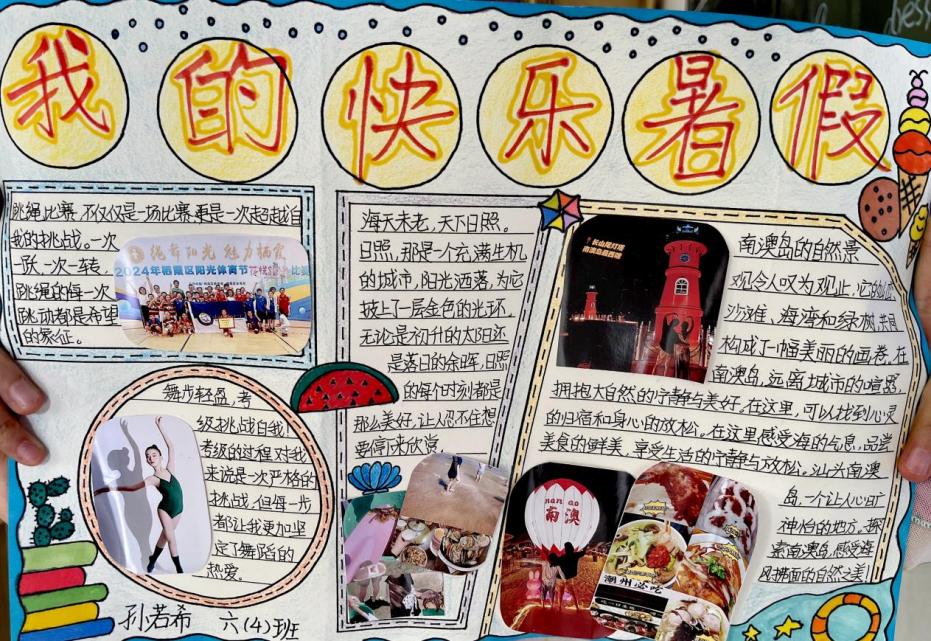 我的快乐暑假
跳绳比赛,不仅仅是一场比赛,更是一次超越自
我的挑战。一次
一跃,一次一转,
跳绳的每一次
跳动都是希望
的象征。
绳奇阳光 魅力栖霞
2024年栖霞区阳光体育节
比赛
舞步轻盈,考
级挑战自我!
考级的过程对我
来说是一次严格的
挑战,但每一步
都让我更加坚
定了舞蹈的
热爱。
孙若希 六(4)班
海天未老,天下日照。
日照,那是一个充满生机
的城市,阳光洒落,为它
披上了一层金色的光环,
无论是初升的太阳还
是落日的余晖,日照
的每个时刻都是
那么美好,让人忍不住想
要停下来欣赏。
长山尾灯塔
南澳岛最西端
南澳岛的自然景
观令人叹为观止,它的
沙滩、海湾和绿树,共同
构成了一幅美丽的画卷,在
南澳岛,远离城市的喧嚣
拥抱大自然的宁静与美好,在这里,可以找到心灵
的归宿和身心的放松。在这里感受海的气息,品尝
美食的鲜美,享受生活的宁静与放松。汕头南澳
岛,一个让人心旷
神怡的地方,探
索南澳岛,感受海
风拂面的自然之美
nan ao
南澳
潮州必吃